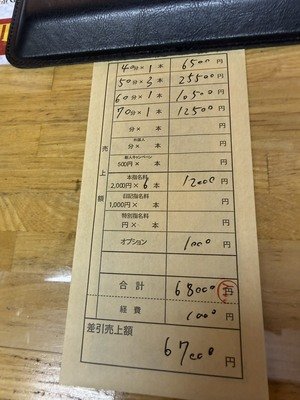 40分×1本 6500円
50分×3本 25500円
60分×1本 10500円
70分×1本 12500円
分×本 円
外国人
分×本 円
新人キャンペーン
500円×本 円
本指名料
2,000円×6本 12000円
日記指名料
1,000円×本 円
特別指名料
円×本 円
オプション 1000円
売上額
合計 68000円
経費 1000円
差引売上額
67000円